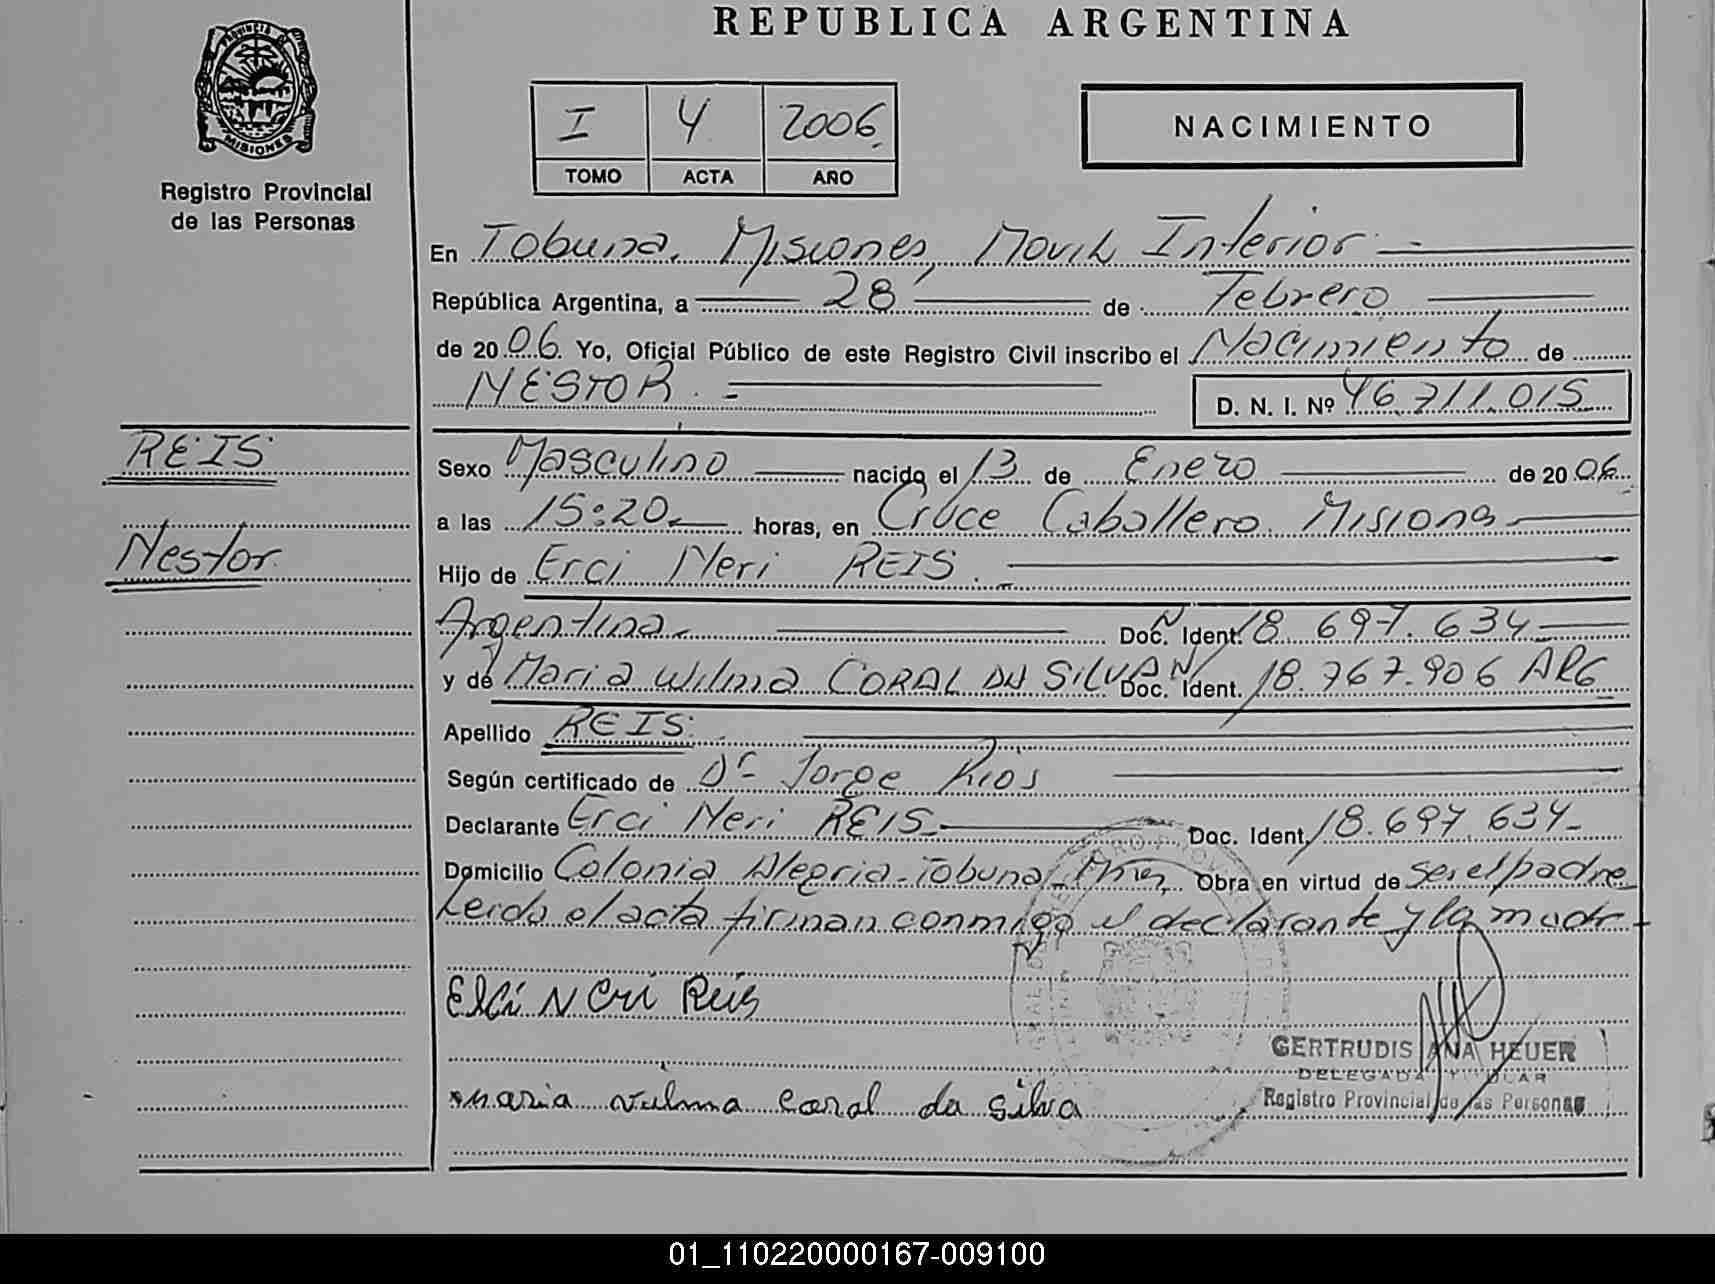 REPUBLICA ARGENTINA
PROVINCIA DE
MISIONES
Registro Provincial
de las Personas
I 4 2006
TOMO ACTA AÑO
NACIMIENTO
En Tobuna, Misiones, Movil Interior
República Argentina, a 28 de Febrero
de 2006. Yo, Oficial Público de este Registro Civil inscribo el Nacimiento de
NESTOR.
D. N. I. Nº 46.711.015
REIS
Nestor
Sexo Masculino nacido el 13 de Enero de 2006
a las 15:20 horas, en Cruce Caballero Misiones
Hijo de Erci Neri REIS.
Argentina Doc. Ident. 18.697.634
y de Maria Wilma CORAL DA SILVA Doc. Ident. 18.767.906 ARG
Apellido REIS
Según certificado de Dr Jorge Rios
Declarante Erci Neri REIS Doc. Ident. 18.697.634
Domicilio Colonia Alegria-Tobuna- Obra en virtud de ser el padre
Leida el acta firman conmigo el declarante y la madre
Elci Neri Reis
maria vilma coral da silva
GERTRUDIS ANA HEUER
DELEGADA TITULAR
Registro Provincial de las Personas
01_110220000167-009100